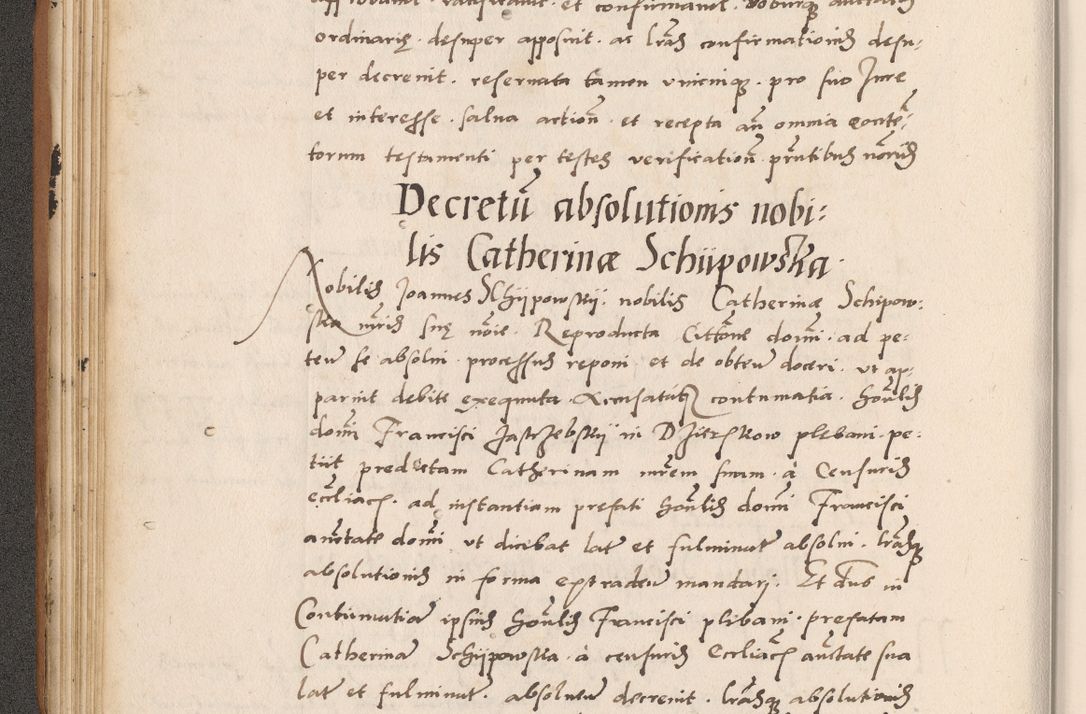 approbavit · ratificavit · et confirmavit · roburque auctoritatis
ordinarię · desuper apposuit · ac lr̃as confirmationis desu-
per decrevit · reservata tamen unicuique · pro suo Jure
et interesse · salva action̄ · et recepta an̄ omnia
torum testamenti per testes verification̄ pñtibus
Decretū absolutionis nobi:
lis Catherinæ Schijpowska ·
Nobilis Joannes Schijpowskij · nobilis Catherinæ Schipow:
ska mr̄is suę nōie · Reproducta Citt̄one domi · ad pe:
ten̄ se absolvi · processus reponi et de obten̄ doceri · ut ap:
paruit debite exequuta · Accusatusq contumatia · hon̄lis
domi Francisci Jastrzebskij in plebani · pe:
tiit predictam Catherinam mr̄em suam · à Censuris
eccl̄iacis · ad instantiam prefati hon̄lis domi Francisci
auc̄tate domi ut dicebat lat̄ et fulminat̄ absolvi · lr̃asq
absolutionis in forma extraden̄ mandari · Et dn̄s in
Contumatia ipsius hon̄lis Francisci plebani · prefatam
Catherinā Schijpowska · à censuris Eccl̄iacis auc̄tate sua
lat̄ et fulminat̄ · absolven̄ decrevit · lr̃asq absolutionis